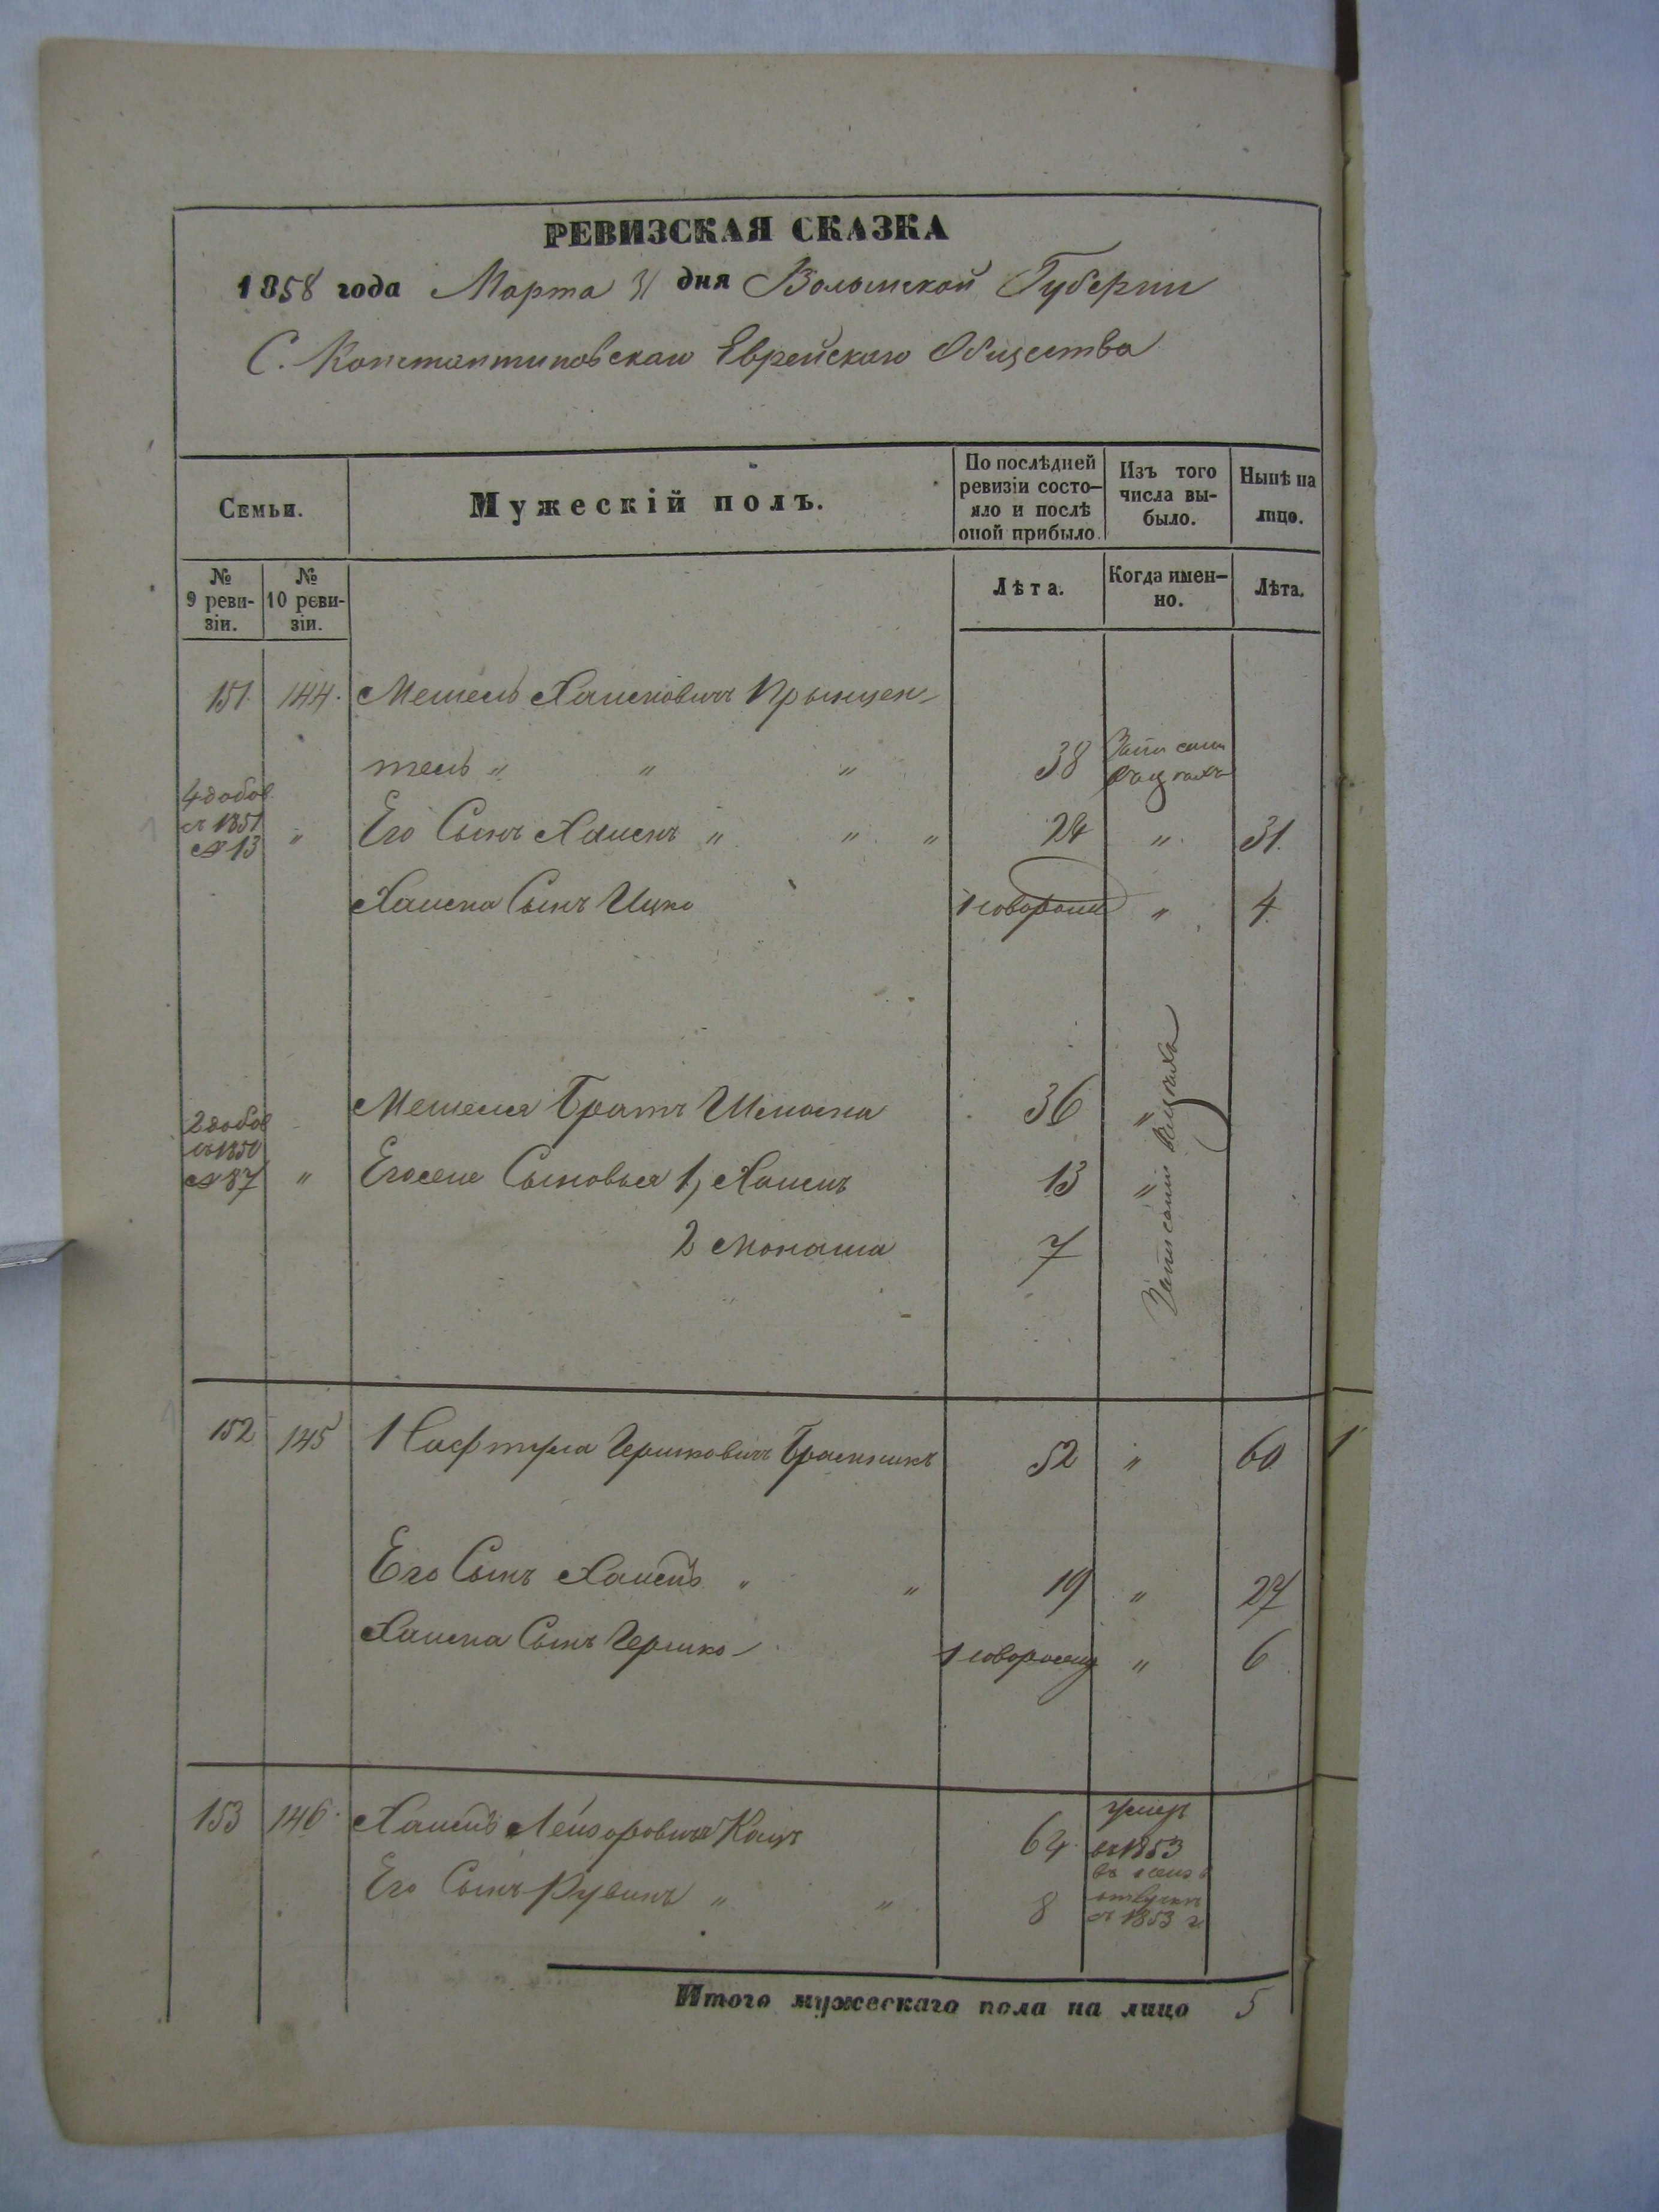 РЕВИЗСКАЯ СКАЗКА
1858 года Марта 31 дня Волынской Губерніи
С. Константиновскаго Еврейскаго Общества
Семьи.
Мужескій полъ.
По послѣдней ревизіи состо-
яло и послѣ
оной прибыло.
Изъ того
числа вы-
было.
Нынѣ на
лицо.
№
9 реви-
зіи.
№
10 реви-
зіи.
Лѣта.
Когда имен-
но.
Лѣта.
151. 144. Хаимовичъ
38
4 добов.
1851
№ 13 " Его Сынъ Хаимъ " " " 24 " 31.
Хаима Сынъ Ицко 1 новорожд " 4.
Братъ 36 "
2 добов
1850
№ 87 " Сыновья 1, Хаимъ 13 "
2 7
152. 145 1 Гершковичъ 52 " 60 1
Его Сынъ Хаимъ " " 19 " 27
Хаима Сынъ Гершко 1 новорожд " 6
153 146. Хаимъ Лейзоровичъ Кацъ 64. умеръ
въ 1853
Его Сынъ Рувинъ " " 8 въ
отлучкѣ
съ 1853 г.
Итого мужескаго пола на лицо 5